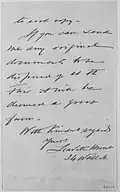 to each copy.
If you can send
me any original
documents to be
displayed at the
Fair it will be
deemed a great
favor.
With kindest regards
Yours